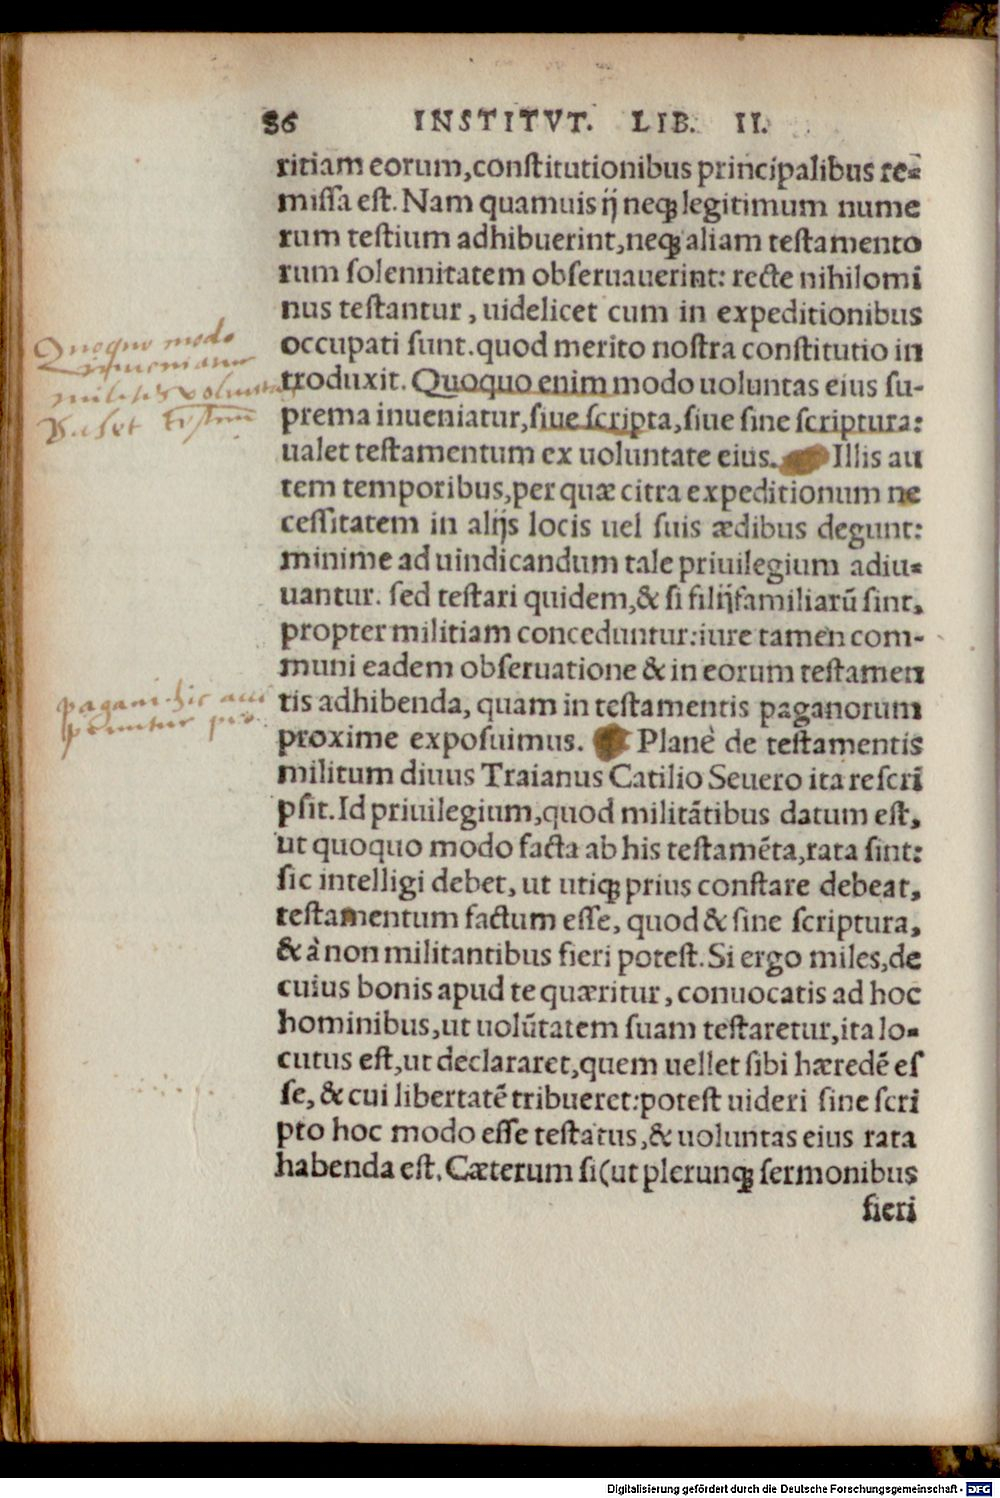 86 INSTITVT. LIB. II.
ritiam eorum,constitutionibus principalibus re-
missa est. Nam quamuis ij neq; legitimum nume
rum testium adhibuerint,neq; aliam testamento
rum solennitatem obseruauerint: recte nihilomi
nus testantur, uidelicet cum in expeditionibus
occupati sunt.quod merito nostra constitutio in
Quoquo modo
troduxit. Quoquo enim modo uoluntas eius su-
militis volunta
prema inueniatur,siue scripta,siue sine scriptura:
Valet
ualet testamentum ex uoluntate eius. Illis au
tem temporibus,per quæ citra expeditionum ne
cessitatem in alijs locis uel suis ædibus degunt:
minime ad uindicandum tale priuilegium adiu-
uantur. sed testari quidem,& si filijfamiliarū sint,
propter militiam conceduntur:iure tamen com-
muni eadem obseruatione & in eorum testamen
pagani hic acci
tis adhibenda, quam in testamentis paganorum
piuntur pro
proxime exposuimus. Planè de testamentis
militum diuus Traianus Catilio Seuero ita rescri
psit. Id priuilegium,quod militātibus datum est,
ut quoquo modo facta ab his testamēta,rata sint:
sic intelligi debet, ut utiq; prius constare debeat,
testamentum factum esse, quod & sine scriptura,
& à non militantibus fieri potest. Si ergo miles,de
cuius bonis apud te quæritur, conuocatis ad hoc
hominibus,ut uolūtatem suam testaretur,ita lo-
cutus est,ut declararet,quem uellet sibi hæredē es
se, & cui libertatē tribueret:potest uideri sine scri
pto hoc modo esse testatus,& uoluntas eius rata
habenda est. Cæterum si(ut plerunq; sermonibus
fieri
Digitalisierung gefördert durch die Deutsche Forschungsgemeinschaft - DFG